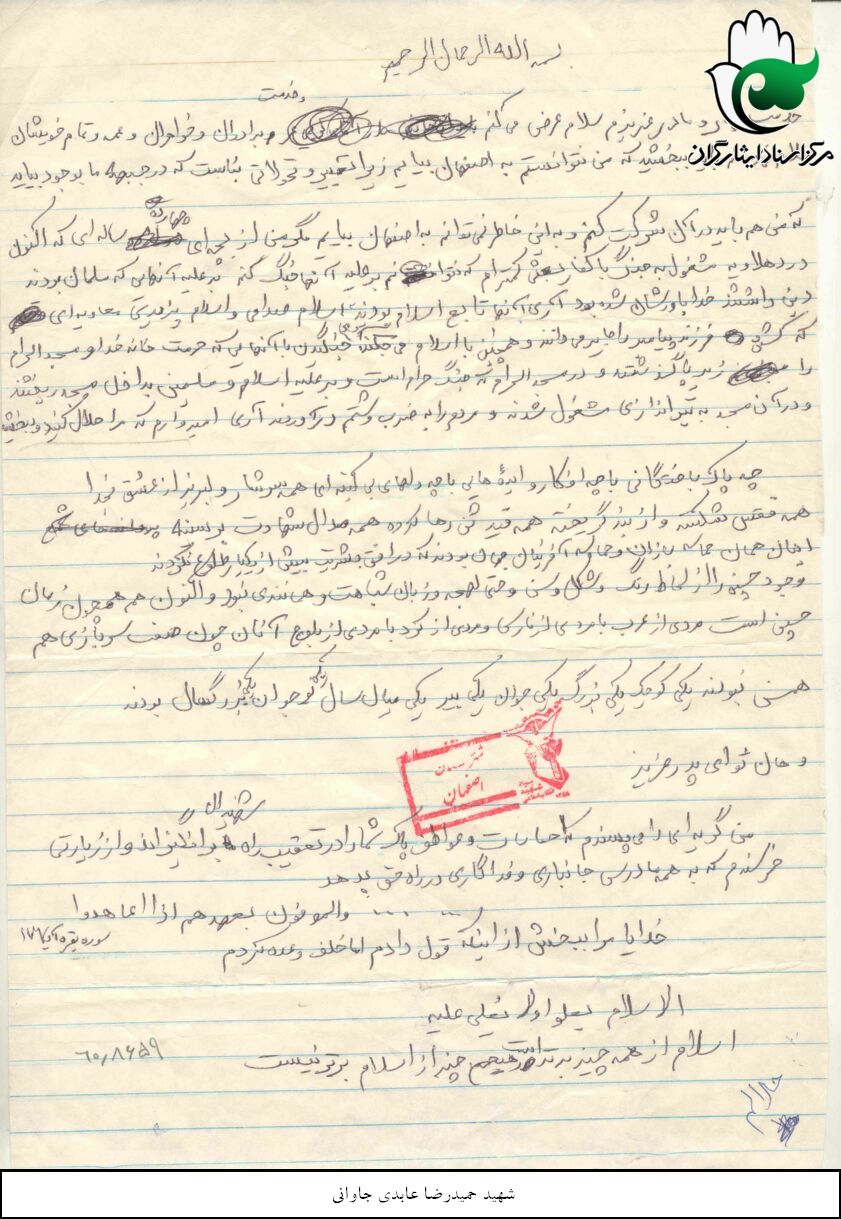 بسم الله الرحمان الرحیم
و خدمت
خدمت پدر و مادر عزیزم سلام عرض می کنم برادران و خواهران و عمه و تمام خویشان
مرکز اسناد ایثارگران
ببخشید که من نتوانستم به اصفهان بیایم زیرا تغییر و تحولاتی بناست که در جبهه ما بوجود بیاید
که من هم باید در آن شرکت کنم و به این خاطر نمی توانم به اصفهان بیایم مگر من از بچه ای چهارده ساله ای که اکنون
در دهلاویه مشغول به جنگ با کفار بعثی کمترام که نتوانم بر علیه آنها جنگ کنم بر علیه آنهایی که سلمان بودند
دین داشتند خدا باورشان شده بود آری آنها تابع اسلام بودند اسلام صدامی و اسلام یزیدی معاویه ای
که فرزند پیامبر را می دانند و همچنین با اسلام می جنگند جنگیدن با آنهایی که حرمت خانه خدا و مسجد الحرام
را زیر پا گذاشتند و در مسجد الحرام که جنگ حرام است و بر علیه اسلام و مسلمین به داخل مسجد ریختند
و در آن مسجد به تیراندازی مشغول شدند و مردم را به ضرب و شتم در آوردند آری امیدوارم که مرا حلال کنید و ببخشید
چه پاک باختگانی با چه افکار و ایده هایی با چه دلهای بی کینه ای همه سرشار و لبریز از عشق خدا
همه قفس شکسته و از بند گریخته همه قید شی رها کرده همه مدال شهادت بر سینه
اینان همان حماسه سازان و حماسه آفرینان جهان بودند که در افق بشریت بیش از یکبار طلوع نکردند
وجود حسینی را از لحاظ رنگ و شکل و سن و حتی لهجه و زبان شباهت و همانندی نبود و اکنون هم همچون زمان
حسین است مردی از عرب با مردی از فارس و مردی از کرد با مردی از بلوچ آنان چون صنف سربازی هم
همسن نبودند یکی کوچک یکی بزرگ یکی جوان یکی پیر یکی میان سال یکی نوجوان یکی بزرگسال بودند
و حال تو ای پدر عزیز
اصفهان
شهیدان
من گریه ای را می پسندم که احساسات و عواطف پاک شما را در تعقیب راه برانگیزاند و از زیارتی
خرسندم که به همه درسی جانبازی و فداکاری در راه حق بدهد
... ... والموفون بعهدهم اذا عاهدوا
سوره بقره آیه ۱۷۶
خدایا مرا ببخش از اینکه قول دادم اما خلف وعده کردم
الاسلام یعلو اولا یعلی علیه
اسلام از همه چیز برتر است هیچ چیز از اسلام برتر نیست
حلالم
شهید حمیدرضا عابدی جاوانی